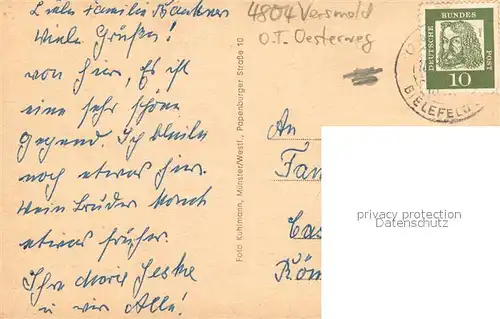 Liebe Familie
Viele Grüßen!
von hier, Es ist
eine sehr schöne
Gegend. Ich bleibe
noch etwas hier.
Mein Bruder kommt
etwas früher.
Ihre Marie Jeske
u wir Alle!
4804 Versmold
O.T. Oesterweg
Foto Kuhlmann, Münster/Westf., Papenburger Straße 10
DEUTSCHE BUNDES POST
10
BIELEFELD
An
Fam
Cas
Röm
privacy protection
Datenschutz